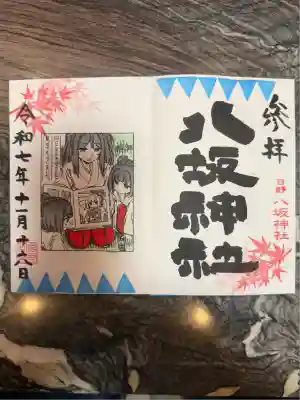 参拝
八坂神社
日野
八坂神社
令和七年十一月十六日